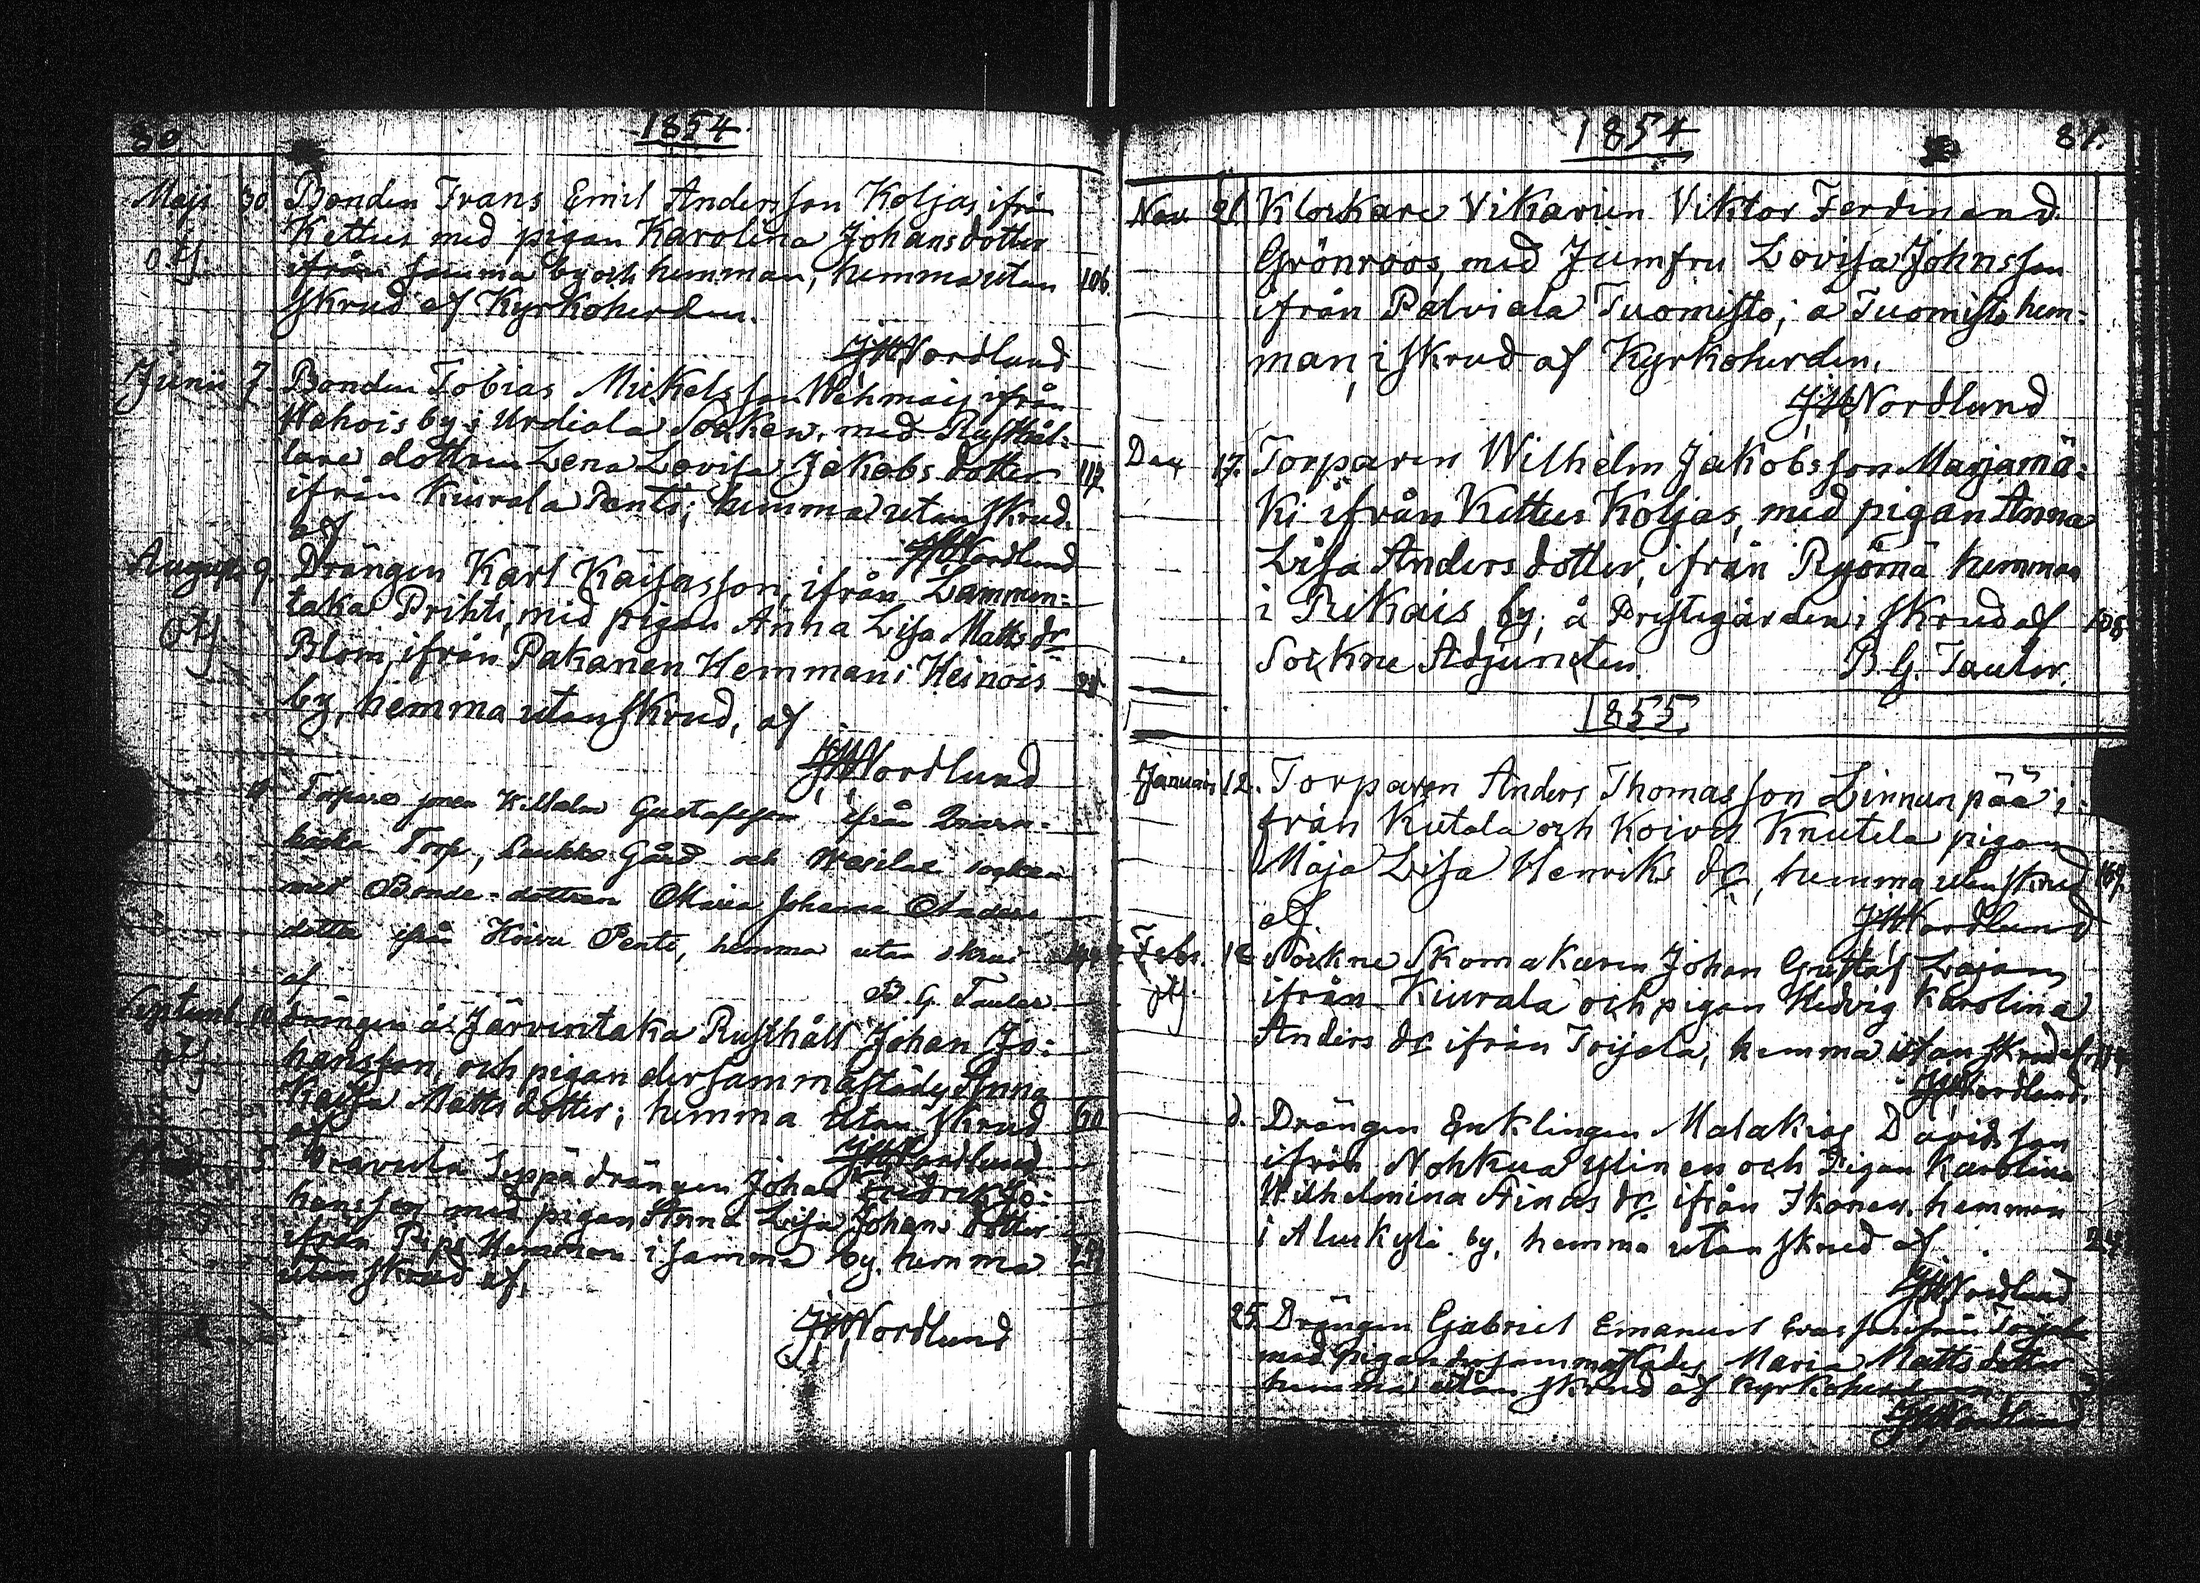 80 1854
Maji 30 Bonden Frans Emil Andersson Koljas ifrån
Kettus med pigan Karolina Johansdotter
ifrån samma by och hemman, hemma utan 106.
skrud af Kyrkoherden.
JWNordlund
Junii 7. Bonden Tobias Mickelsson Wehmais ifrån
Wahois by i Urdiala Socken, med Rusthål-
lare dottren Lena Lovisa Jakobsdotter 117
ifrån Kiurala Penti; hemma utan skrud.
af JWNordlund
Augusti 9. Drängen Karl Kaisasson, ifrån Lammen-
taka Prihti, med pigan Anna Lisa Matts dr
Blom, ifrån Pakanen Hemman i Heinois
by, hemma utan skrud, af
JWNordlund
Torpare sonen Wilhelm Gustafsson ifrån
Torp, Laukko Gård och Wesilax socken
med Bonde-dottren Maria Johanna Anders
dotter ifrån Hoivu Penti, hemma utan skrud
af B. G. Tauler.
Septemb. 10 drängen å Järventaka Rusthåll Johan Jo-
hansson, och pigan dersammastädes Anna
Kaisa Mattsdotter; hemma utan skrud 60
af JWNordlund
5 Seppä drängen Johan Fredrik Jo-
hansson med pigan Anna Lisa Johansdotter
ifrån Pipo Hemman i samma by, hemma
utan skrud af,
JWNordlund
1854 81.
Nov. 21. Klockare Vikarien Viktor Ferdinand
Grönroos, med Jumfru Lovisa Johnsson
ifrån Palviala Tuomisto; å Tuomisto hem-
man, i skrud af Kyrkoherden.
JWNordlund
Dec 17. Torparen Wilhelm Jakobsson Marjamä-
ki ifrån Kettus Koljas, med pigan Anna
Lisa Andersdotter, ifrån Ryömä hemman
i Rikais by; å Prestegården i skrud af 106.
Sockne Adjuncten. B. G. Tauler.
1855
Januari 12. Torparen Anders Thomasson Linnunpää i-
från Kutala och Koivu Knutila pigan
Maja Lisa Henriks dr, hemma utan skrud
af JWNordlund
Febr. Sockne Skomakaren Johan Gustaf Lajan,
ifrån Kiurala och pigan Hedvig Karolina
Anders dr ifrån Toijola, hemma utan skrud af
JWNordlund.
d. Drängen Enklingen Malakias Davidsson
ifrån Nohkua Ylinen och Pigan Karolina
Wilhelmina dr ifrån Ikonen hemman
i Aluskylä by, hemma utan skrud af 24
JWNordlund
25. Drängen Gabriel Emanuel ifrån Toijola
med pigan dersammastädes Maria Mattsdotter
hemma utan skrud af Kyrkoherden
JWNordlund